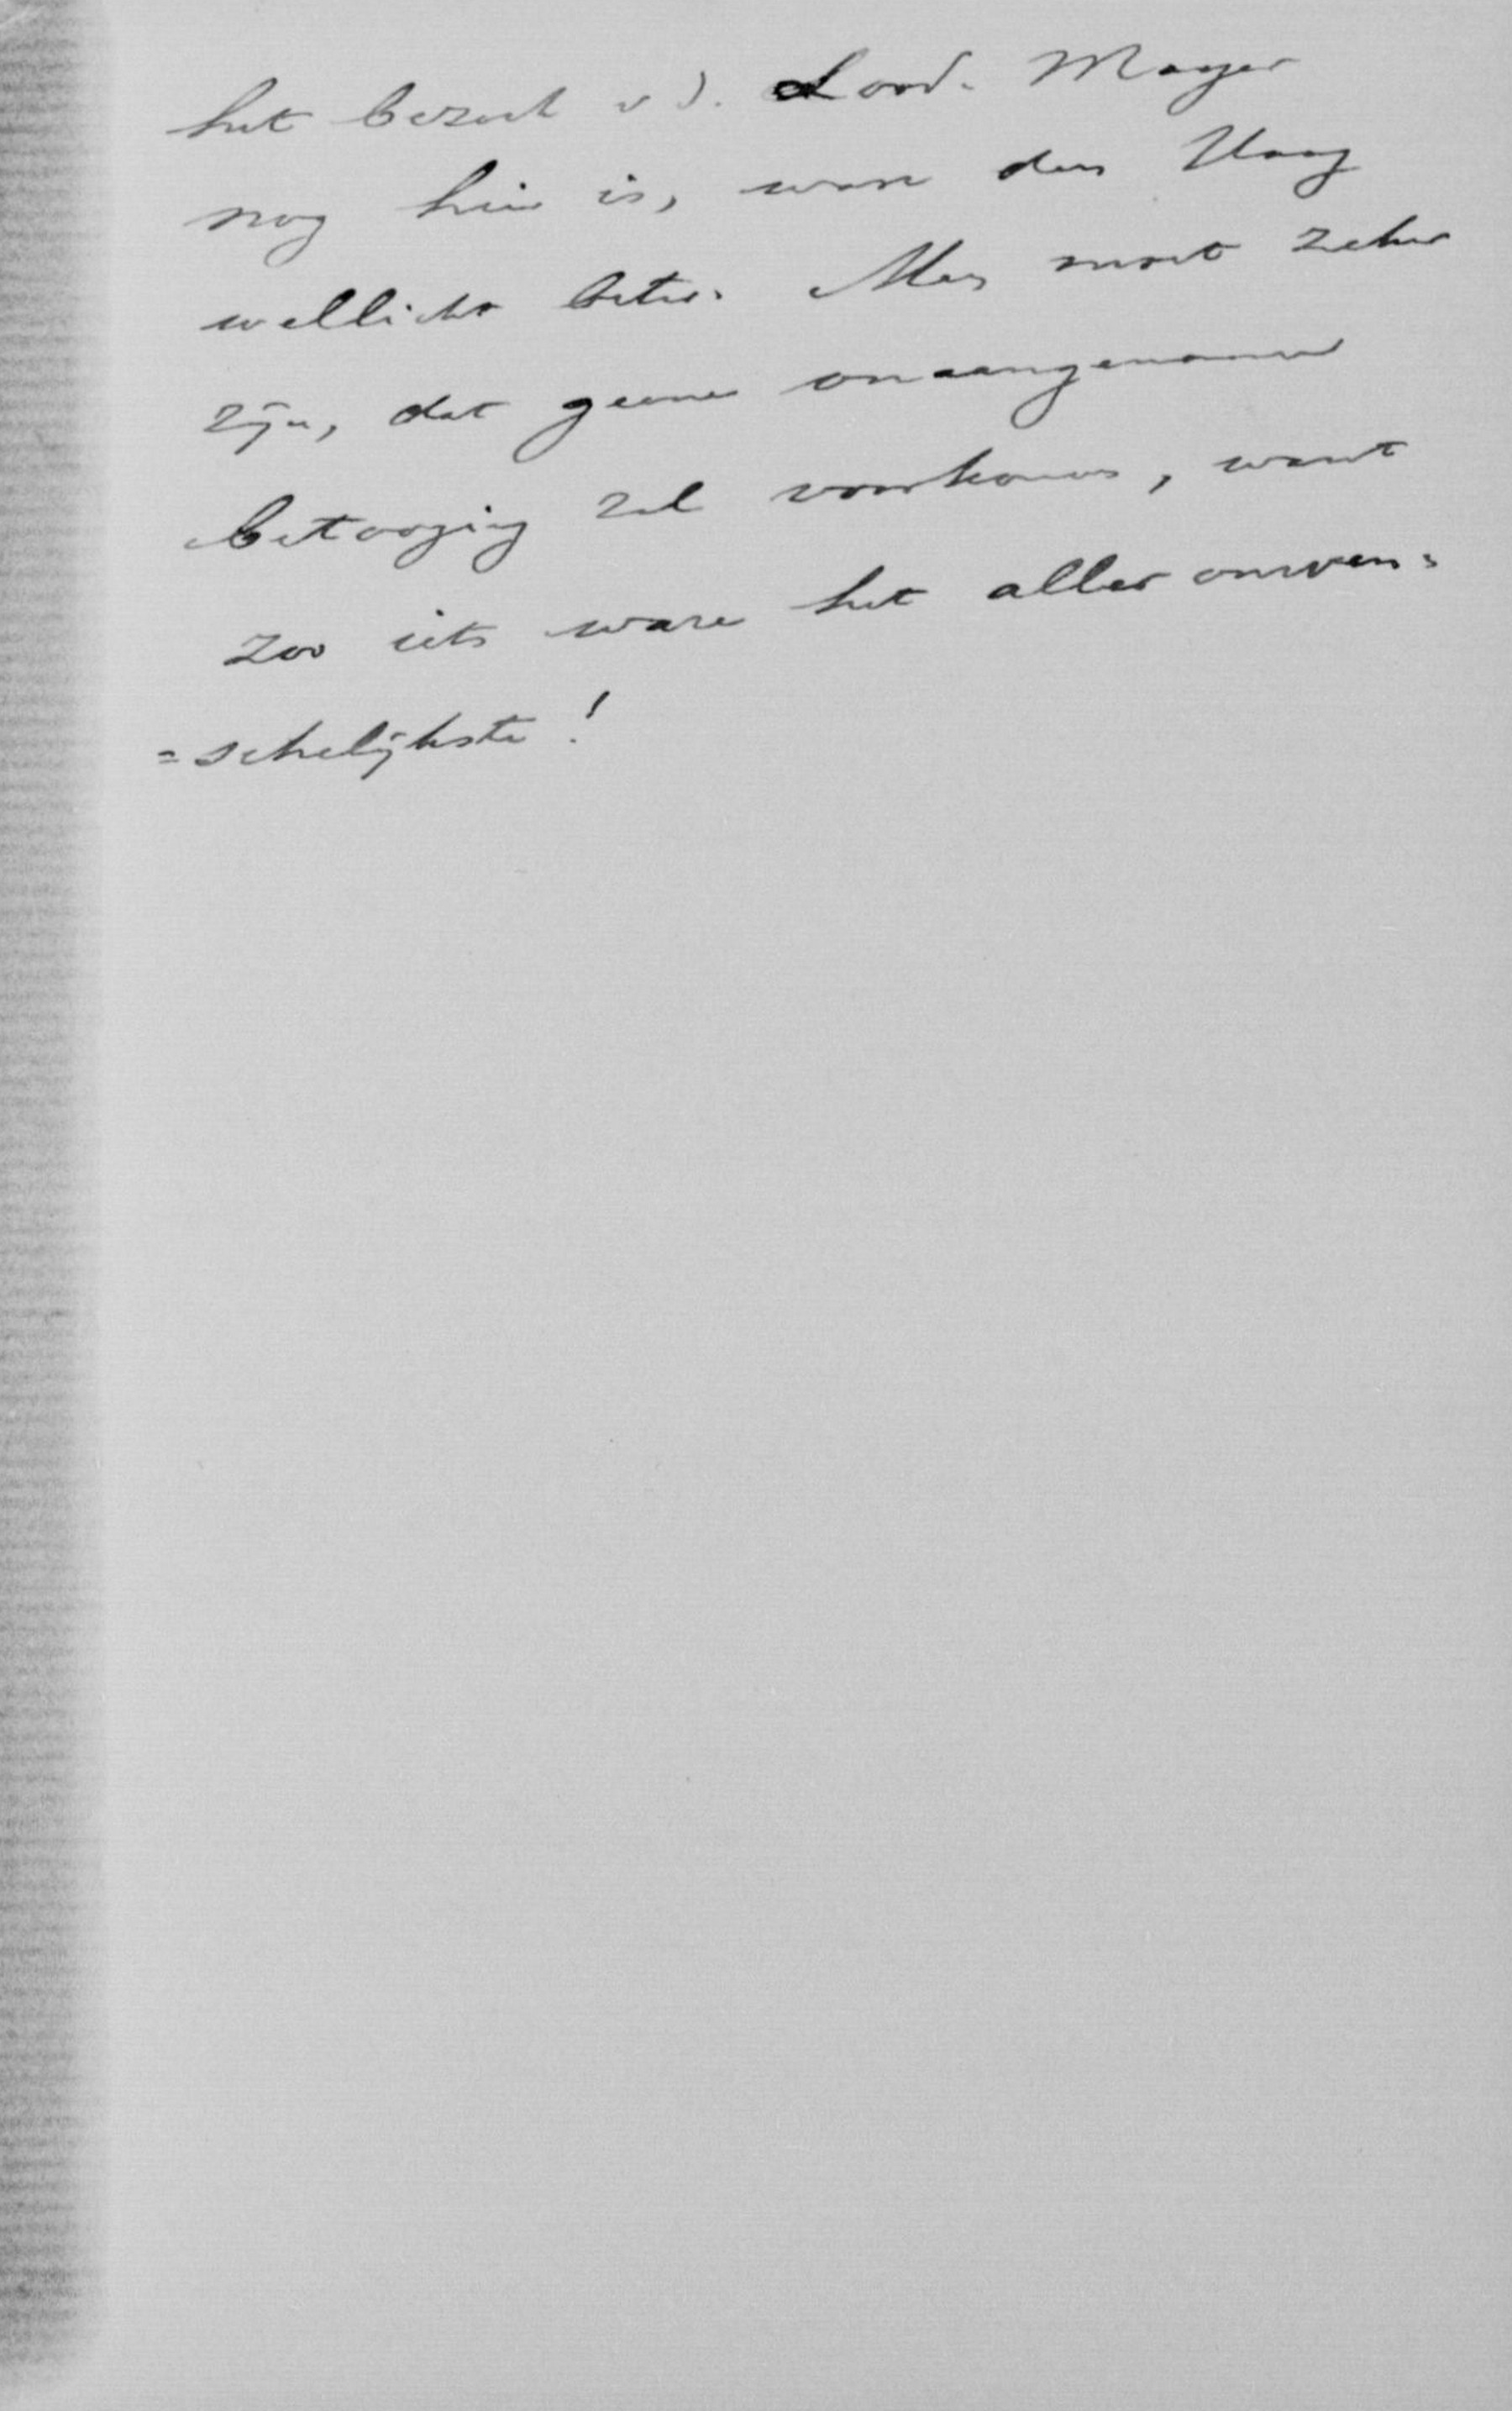 het bezoek v d. Lord. Mayor
nog hier is, ware den Haag
wellicht beter. Men moet zeker
zijn, dat geene onaangename
betooging zal voorkomen, want
zoo iets ware het aller onwen=
=schelijkste!